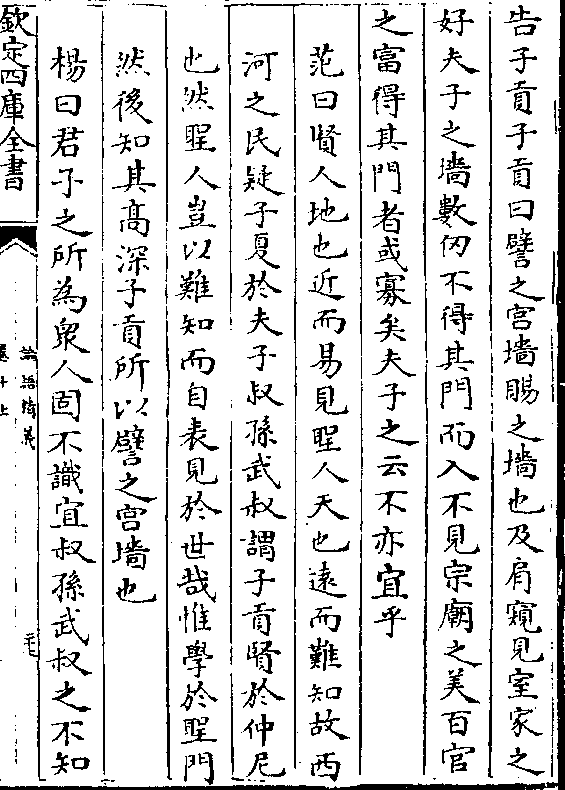 告子貢子貢曰譬之宫墻賜之墻也及肩窺見室家之
好夫子之墻數仞不得其門而入不見宗廟之美百官
之富得其門者或寡矣夫子之云不亦宜乎
范曰賢人地也近而易見聖人天也逺而難知故西
河之民疑子夏於夫子叔孫武叔謂子貢賢於仲尼
也然聖人豈以難知而自表見於世哉惟學於聖門
然後知其髙深子貢所以譬之宫墻也
楊曰君子之所為衆人固不識宜叔孫武叔之不知
欽定四庫全書
論語精義
卷十上